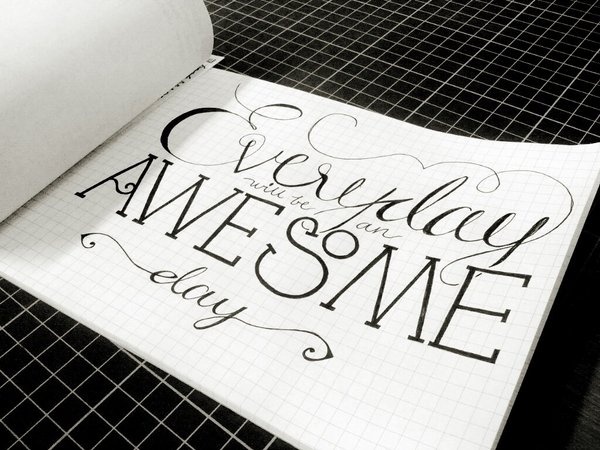 Everyday
will be an
AWESOME
day